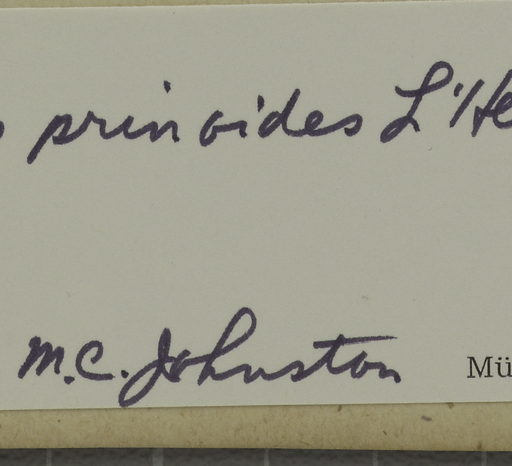 prinoides L'He
M.C. Johnston
Mü